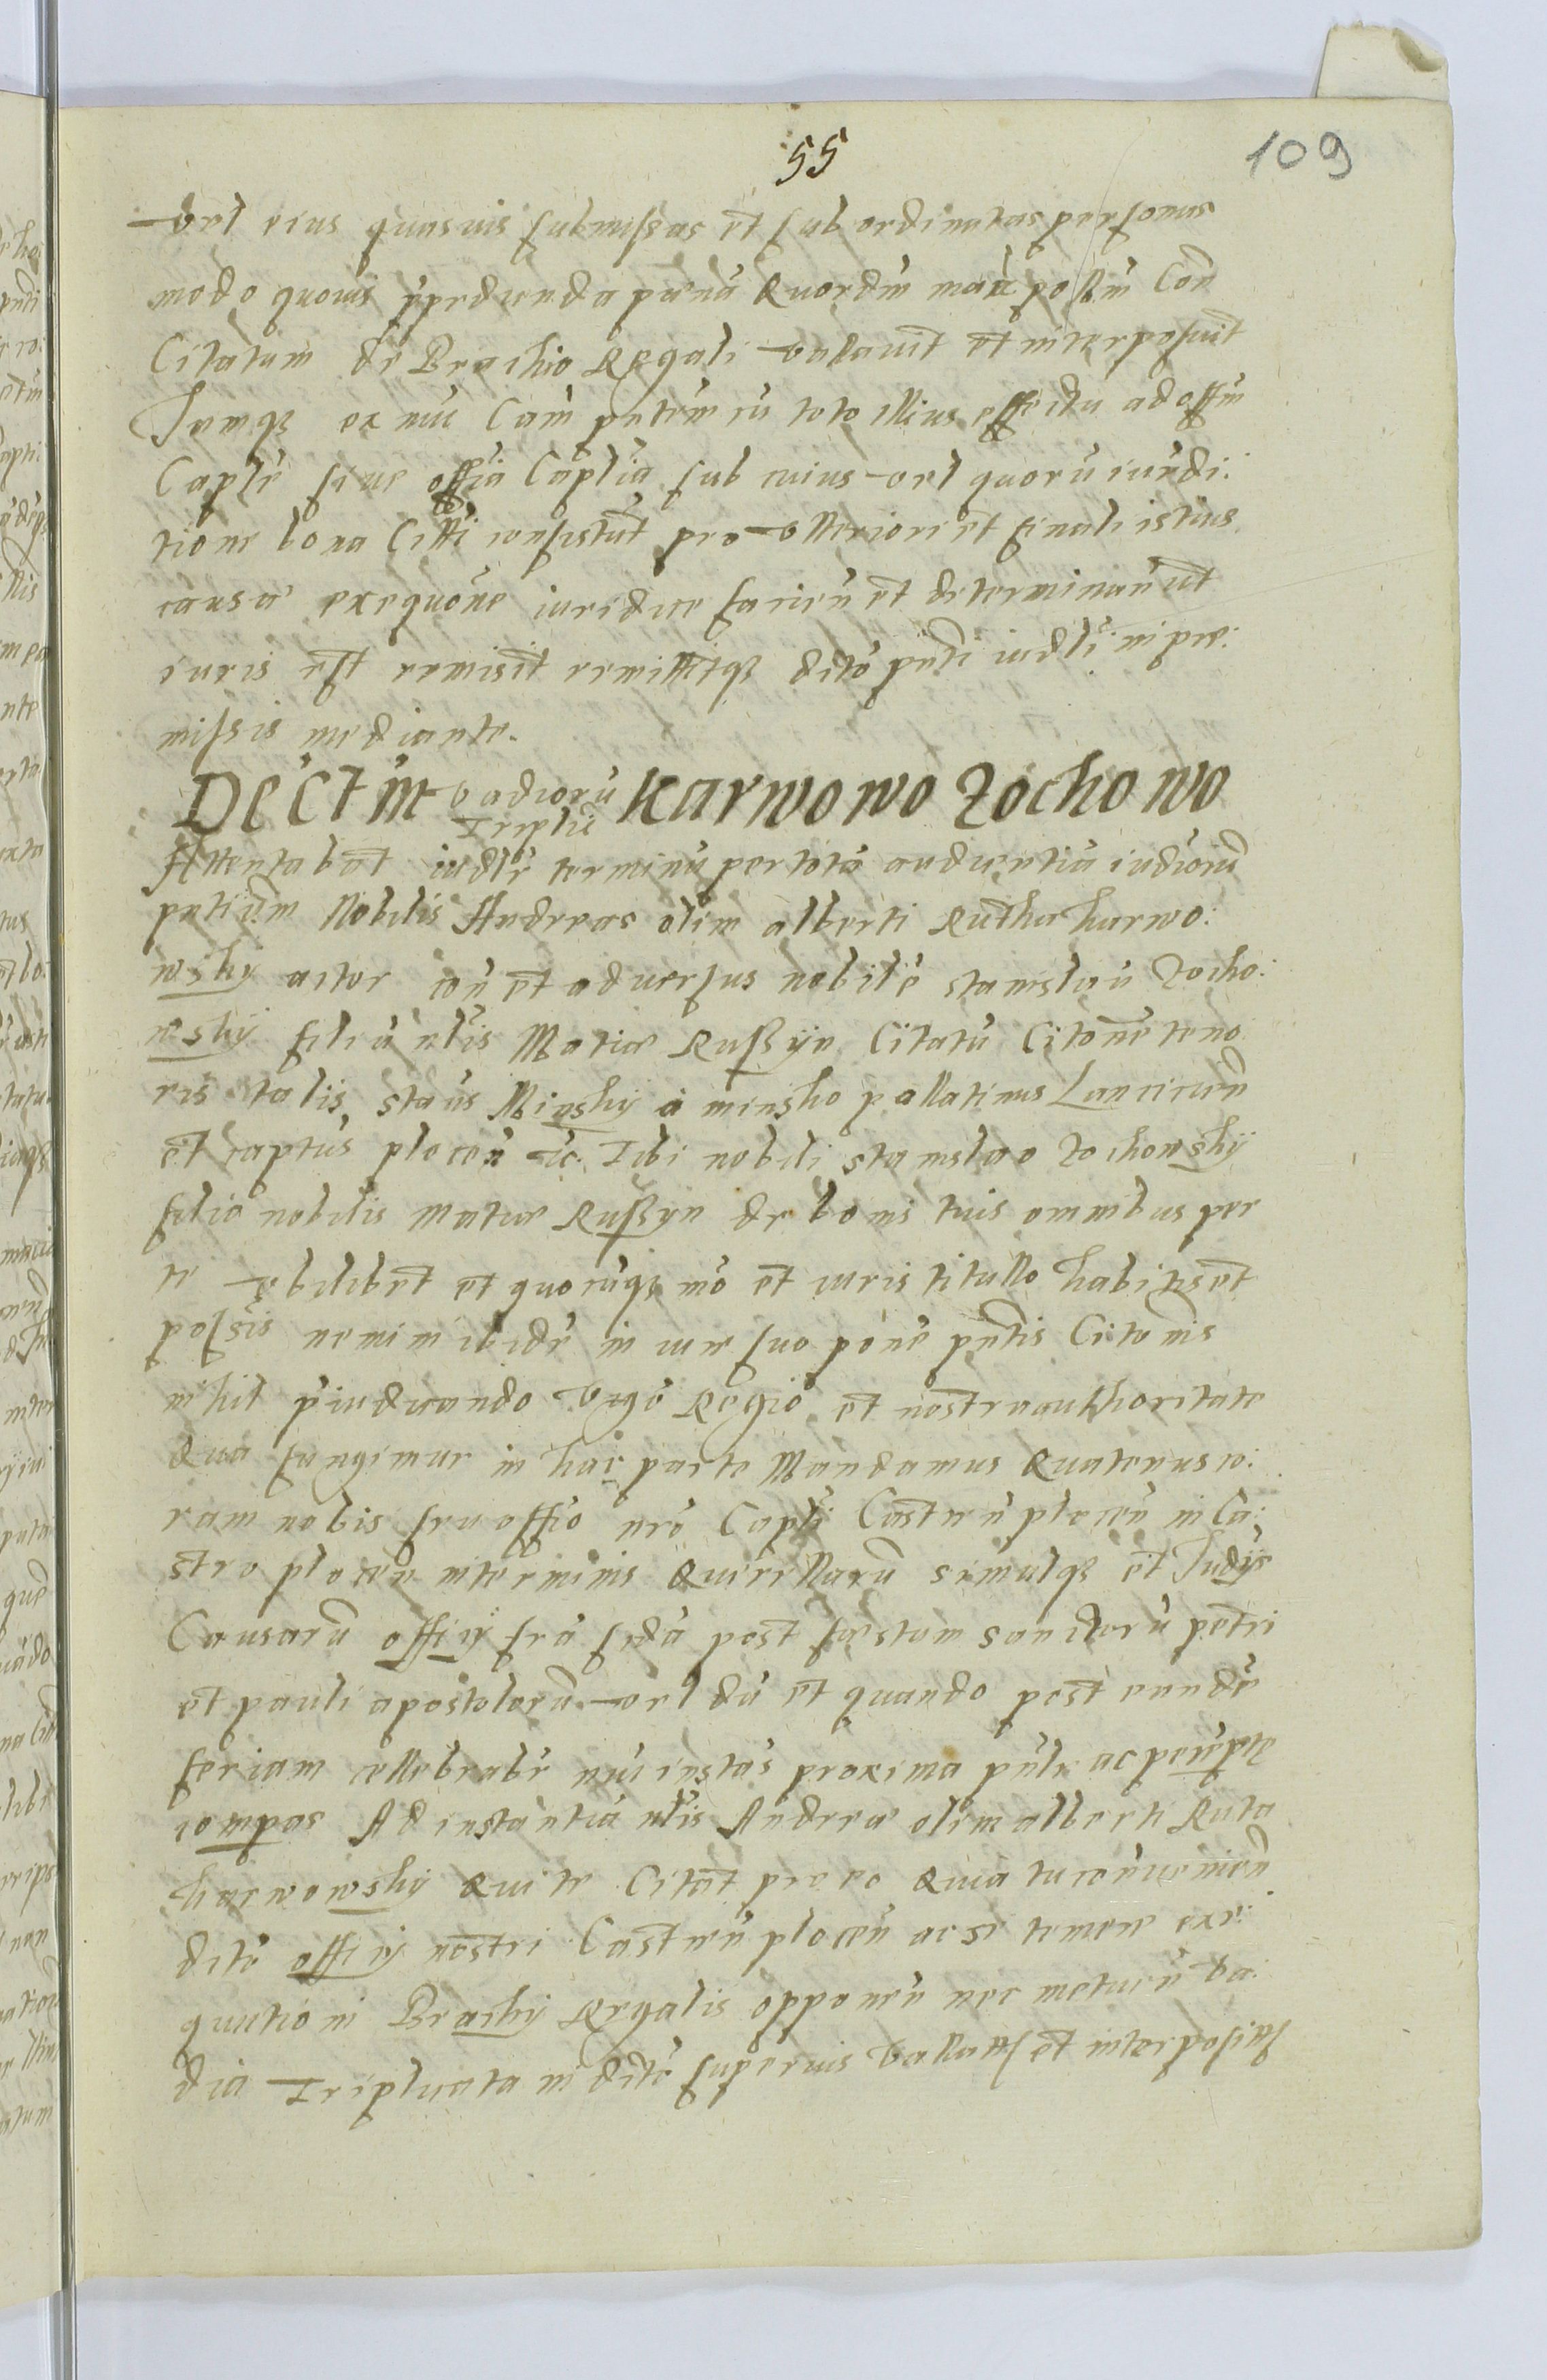 55
109
vel eius quasuis submissas et subordinatas personas
modo quouis impedienda pœna quordm max possm Con
Citatum de Brachio Regali vallauit et interposuit
Jamq3 ex nũc Cam pntem cũ toto illius effectu ad offm
Caple siue offia Caplia sub cuius vel quorũ iurdi:
tione bona Citti consistũt pro vlteriori et finali istius
causæ exequõne iuridice facien et determinan ut
iuris est remisit remittitq3 dcto pnti iudli in præ:
missis mediante.
DECTUM vadiorũ Triplic Karwowo Zochowo
Attentabat iudle terminũ per totã audientiã iudiorũ
pntium Nobilis Andreas olim alberti Rutha karwo:
wsky actor con et aduersus nobilẽ stanislaũ Zocho:
wskÿ filiũ nlis Matiæ Russÿn Citatũ Citõne teno
ris talis, Staus Minskÿ a minsko pallatinus Lancicien
et captus plocen etc. Tibi nobili stanislao Zochowskÿ
filio nobilis Matiæ Russyn de bonis tuis omnibus per
te vbilibet et quocũq3 mõ et iuris titullo habitis et
possis nemini ibidẽ in iure suo põne pntis Citõnis
nihil p̃iudicando vigõ Regio et nostra authoritate
qua fungimur in hac parte Mandamus quatenus co:
ram nobis seu offio nro Capli Castren plocen in Ca:
stro plocen in terminis Querellarũ simulq3 et Judÿs
Causarũ officÿ fra scda post fæstum sanctorũ petri
et pauli apostolorũ vel dũ et quando post eandẽ
feriam cellebrabr nũc instas proxima pnlr ac perẽpte
compas Ad instantiã nlis Andreæ olim alberti Ruta
karwowsky qui te Citat pro eo quia tu conuenien
dcto officÿ nostri Castren plocen ac se temere exe:
qutioni Brachÿ Regalis opponen nec metuen va:
dia Triplicata in dcto superius vallata et interposita